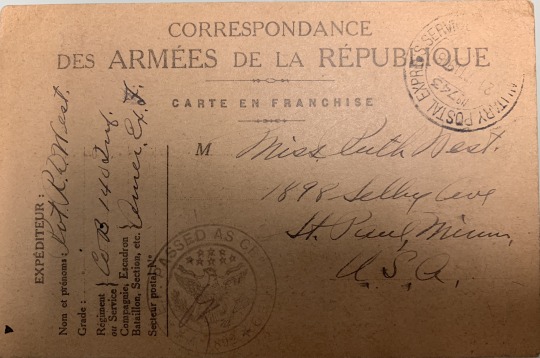 CORRESPONDANCE
DES ARMÉES DE LA RÉPUBLIQUE
CARTE EN FRANCHISE
M Miss Ruth West.
1898 Selby Ave
St. Paul, Minn,
U.S.A.
EXPÉDITEUR:
Nom et prénoms: Pvt R. D. West.
Grade:
Régiment
ou Service Co B 140 Inf.
Compagnie, Escadron
Bataillon, Section, etc. Amer. Ex. F.
Secteur postal No
MILITARY POSTAL EXPRESS SERVICE
No 743
PASSED AS